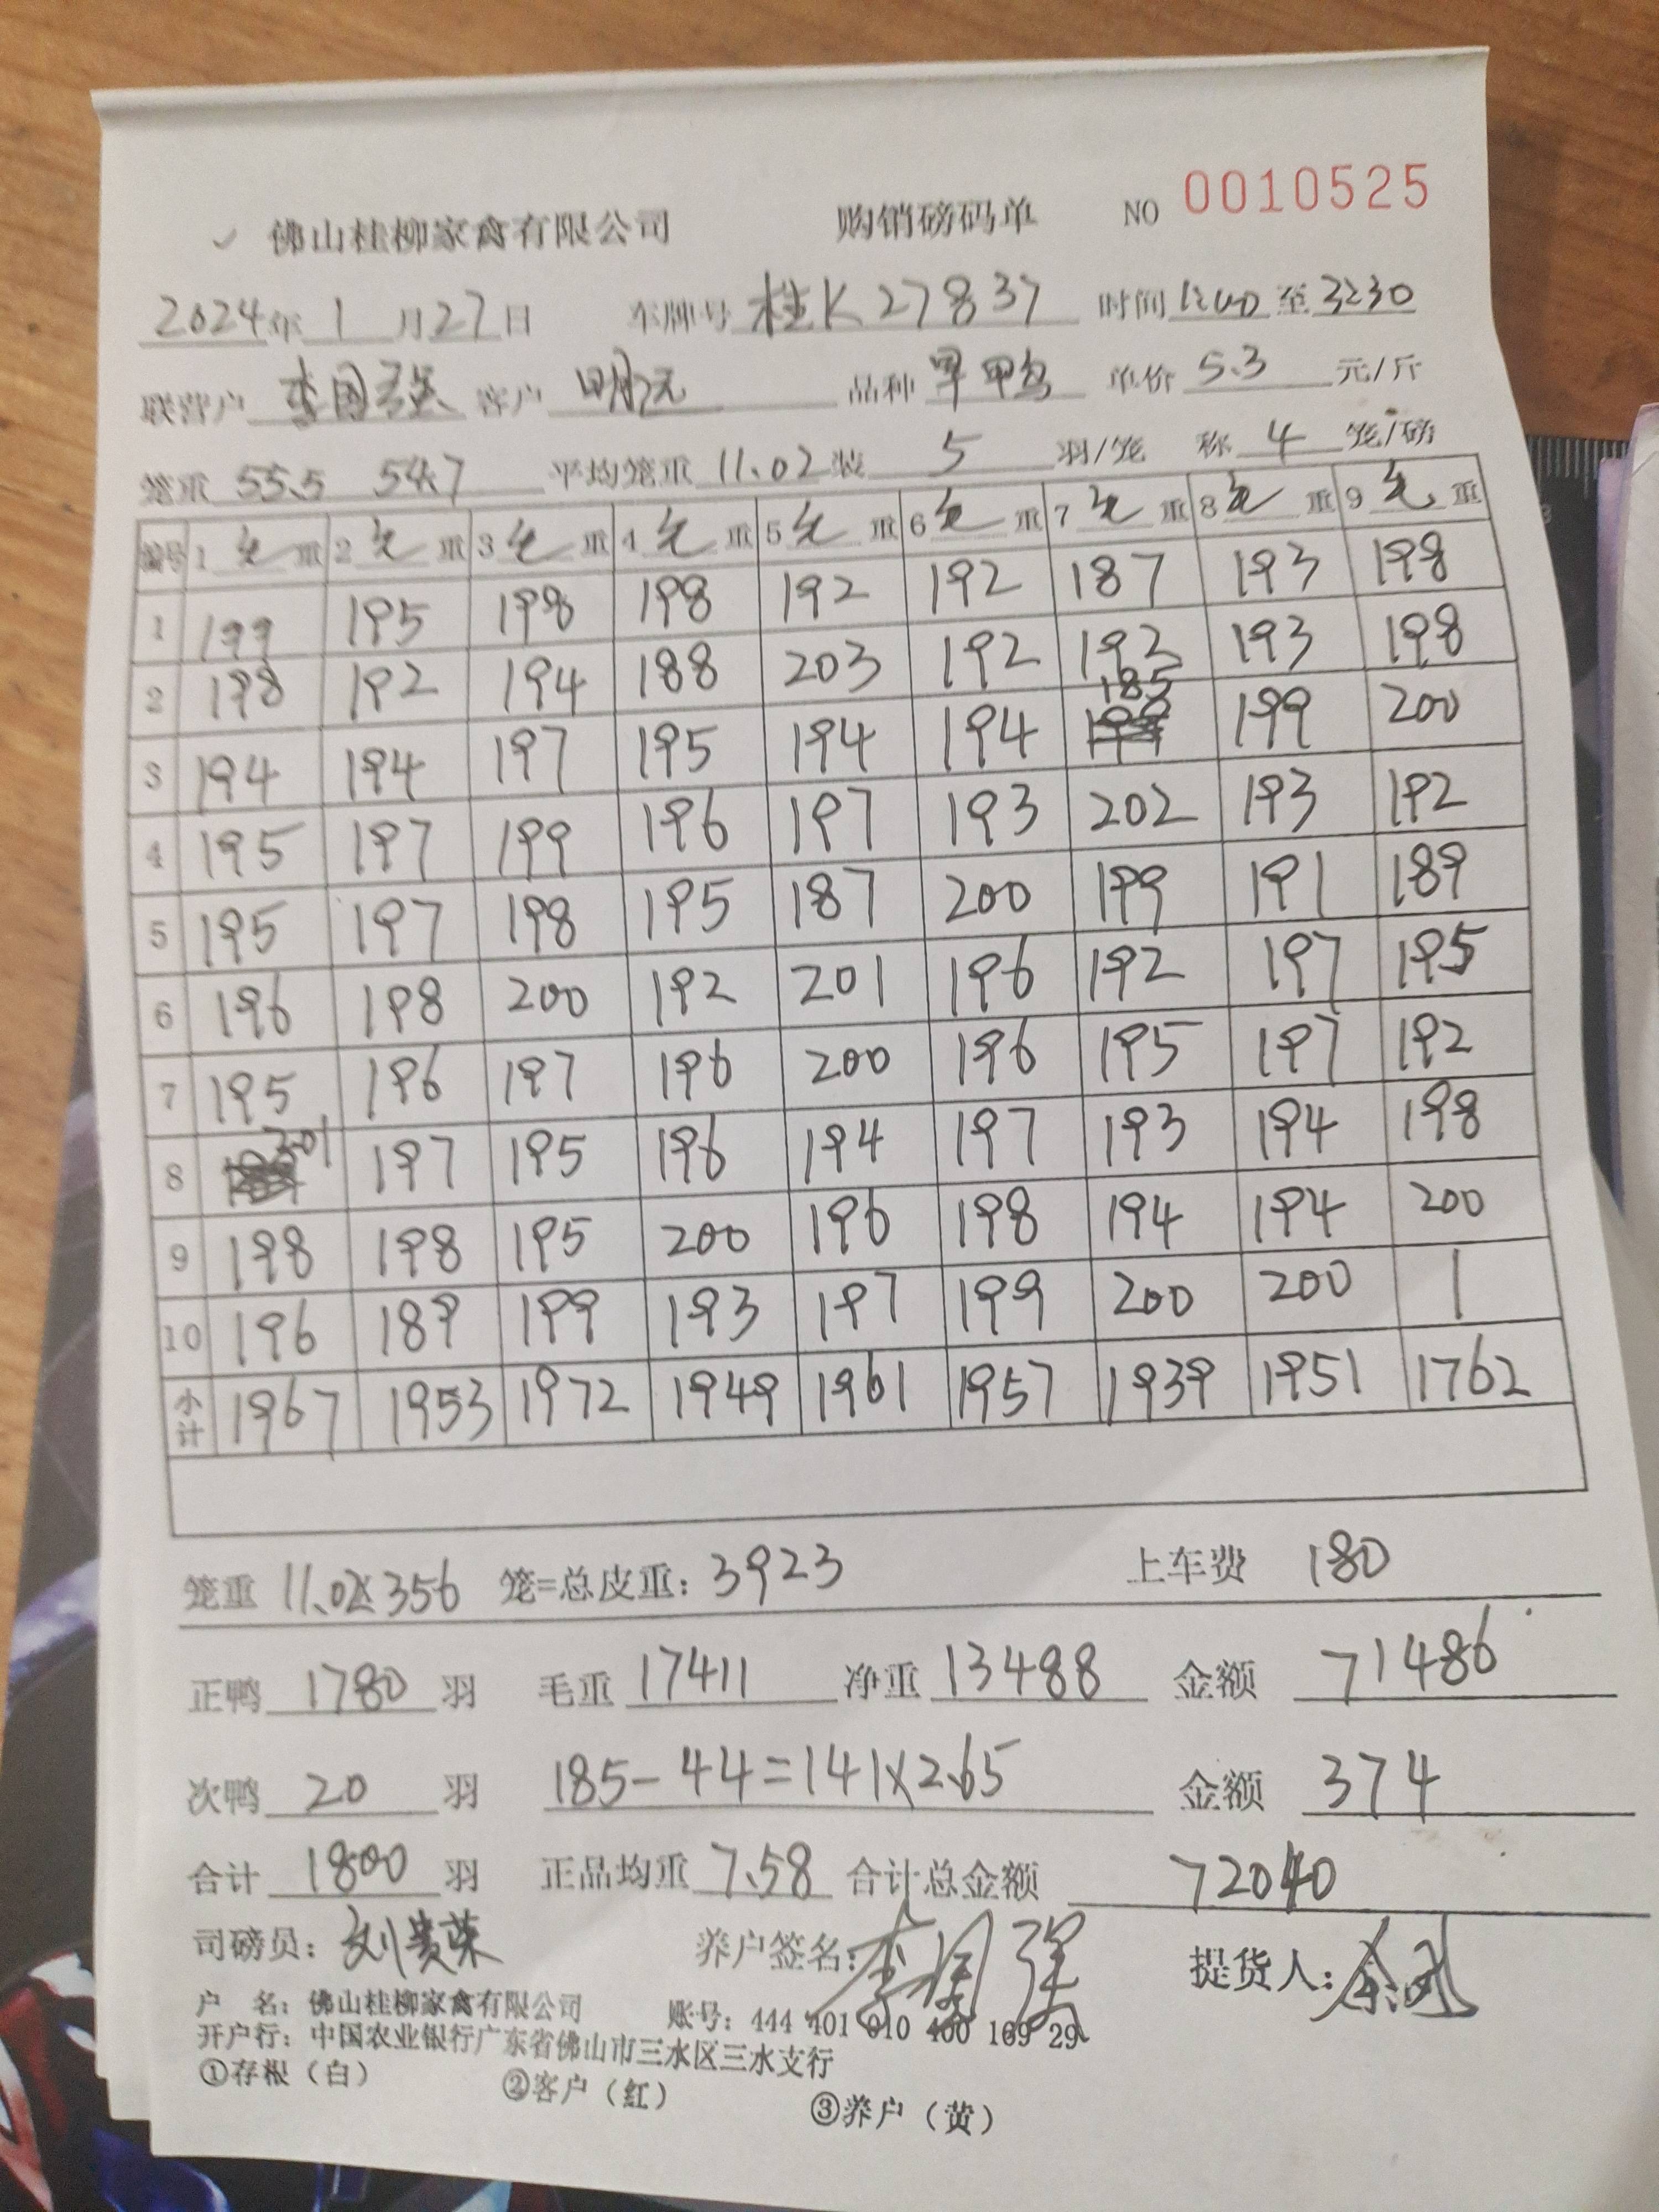 佛山桂柳家禽有限公司 购销磅码单 NO 0010525
2024年 1 月 27 日 车牌号 桂K27837 时间 12:00 至 3:30
联营户 李国强 客户 明沅 品种 旱鸭 单价 5.3 元/斤
笼重 55.5 54.7 平均笼重 11.02 装 5 羽/笼 称 4 笼/磅
编号 1 毛 重 2 毛 重 3 毛 重 4 毛 重 5 毛 重 6 毛 重 7 毛 重 8 毛 重 9 毛 重
1 199 195 198 198 192 192 187 193 198
2 198 192 194 188 203 192 192 193 198
3 194 194 197 195 194 194 185 199 200
4 195 197 199 196 197 193 202 193 192
5 195 197 198 195 187 200 199 191 189
6 196 198 200 192 201 196 192 197 195
7 195 196 197 196 200 196 195 197 192
8 201 197 195 196 194 197 193 194 198
9 198 198 195 200 196 198 194 194 200
10 196 189 199 193 197 199 200 200 1
小计 1967 1953 1972 1949 1961 1957 1939 1951 1762
笼重 11.02×356 笼=总皮重: 3923 上车费 180
正鸭 1780 羽 毛重 17411 净重 13488 金额 71486
次鸭 20 羽 185-44=141×2.65 金额 374
合计 1800 羽 正品均重 7.58 合计总金额 72040
司磅员: 刘贵荣 养户签名: 李国强 提货人:
户 名: 佛山桂柳家禽有限公司 账号: 444 401 010 400 169 29
开户行: 中国农业银行广东省佛山市三水区三水支行
①存根（白） ②客户（红） ③养户（黄）